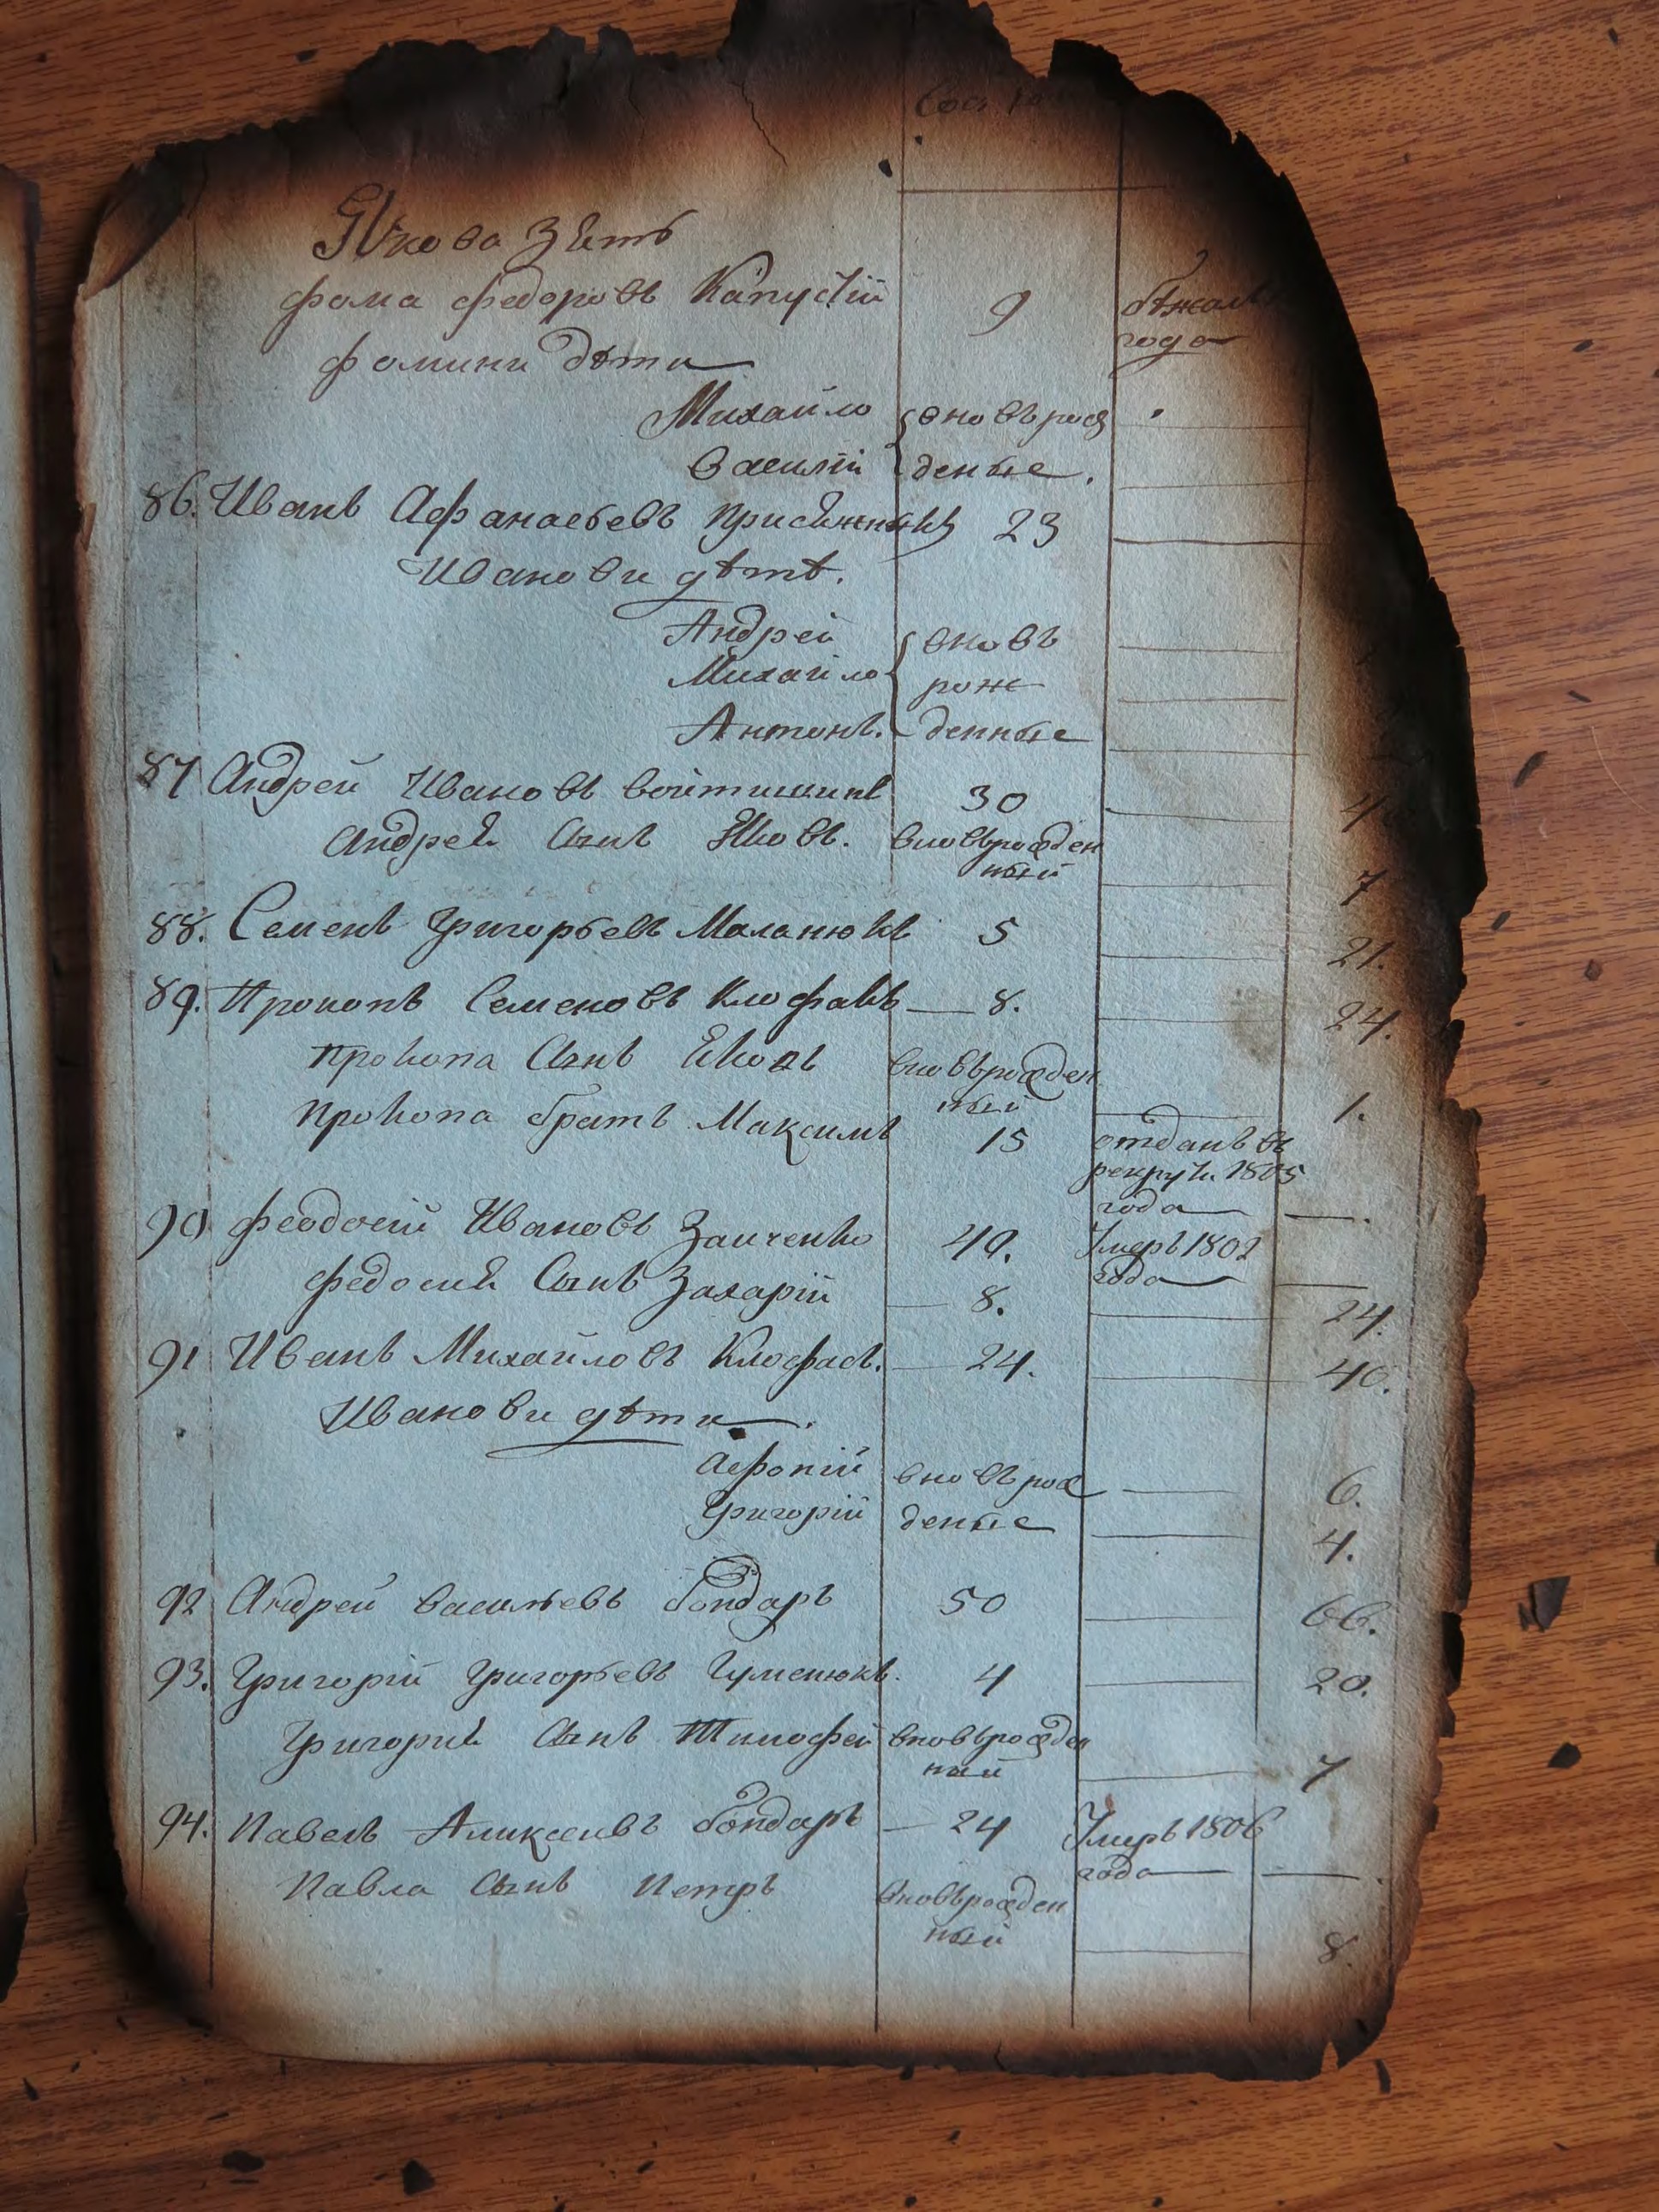 Якова зять
Фома Федоровъ Капустій 9 бѣжалъ
года
Фомини дѣти
Михайло вновърож
Василій деные.
86. Иванъ Афанасьевъ 23
Иванови дѣтѣ.
Андрей вновъ
Михайло рож
Антонъ. денные
87 Андрей Ивановъ Войтишинъ 30
Андрея сынъ Яковъ. вновърожден
ный 7
88. Семенъ Григорьевъ Маланюкъ 5 21.
89. Прокопъ Семеновъ Клофасъ 8. 24.
Прокопа сынъ Яковъ вновърожден
ный 1.
Прокопа братъ Максимъ 15 отданъ въ
рекруты 1805
года
90 Феодосій Ивановъ Заиченко 49. Умеръ 1802
года
Федосия сынъ Захарій 8. 24.
91 Иванъ Михайловъ Клофасъ. 24. 40.
Иванови дѣти.
Афоній вновърож 6.
Григорій деные 4.
92 Андрей Васильевъ Бондаръ 50 66.
93. Григорій Григорьевъ Гуменюкъ. 4 20.
Григория сынъ Тимофей вновърожден
ный 7
94. Павелъ Аликсеивъ Бондаръ 24 Умеръ 1806
года
Павла сынъ Петръ вновърожден
ный 8.